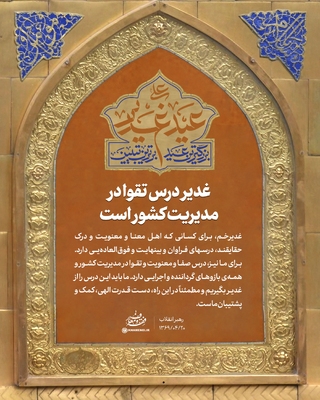 عید غدیر
غدیر درس تقوا در
مدیریت کشور است
غدیرخم، برای کسانی که اهل معنا و معنویت و درک
حقایقند، درسهای فراوان و بینهایت و فوق‌العاده‌یی دارد.
برای ما نیز، درس صفا و معنویت و تقوا در مدیریت کشور و
همه‌ی بازوهای گرداننده و اجرایی دارد. ما باید این درس را از
غدیر بگیریم و مطمئناً در این راه، دست قدرت الهی، کمک و
پشتیبان ماست.
رهبر انقلاب
۱۳۶۹/۰۴/۲۰